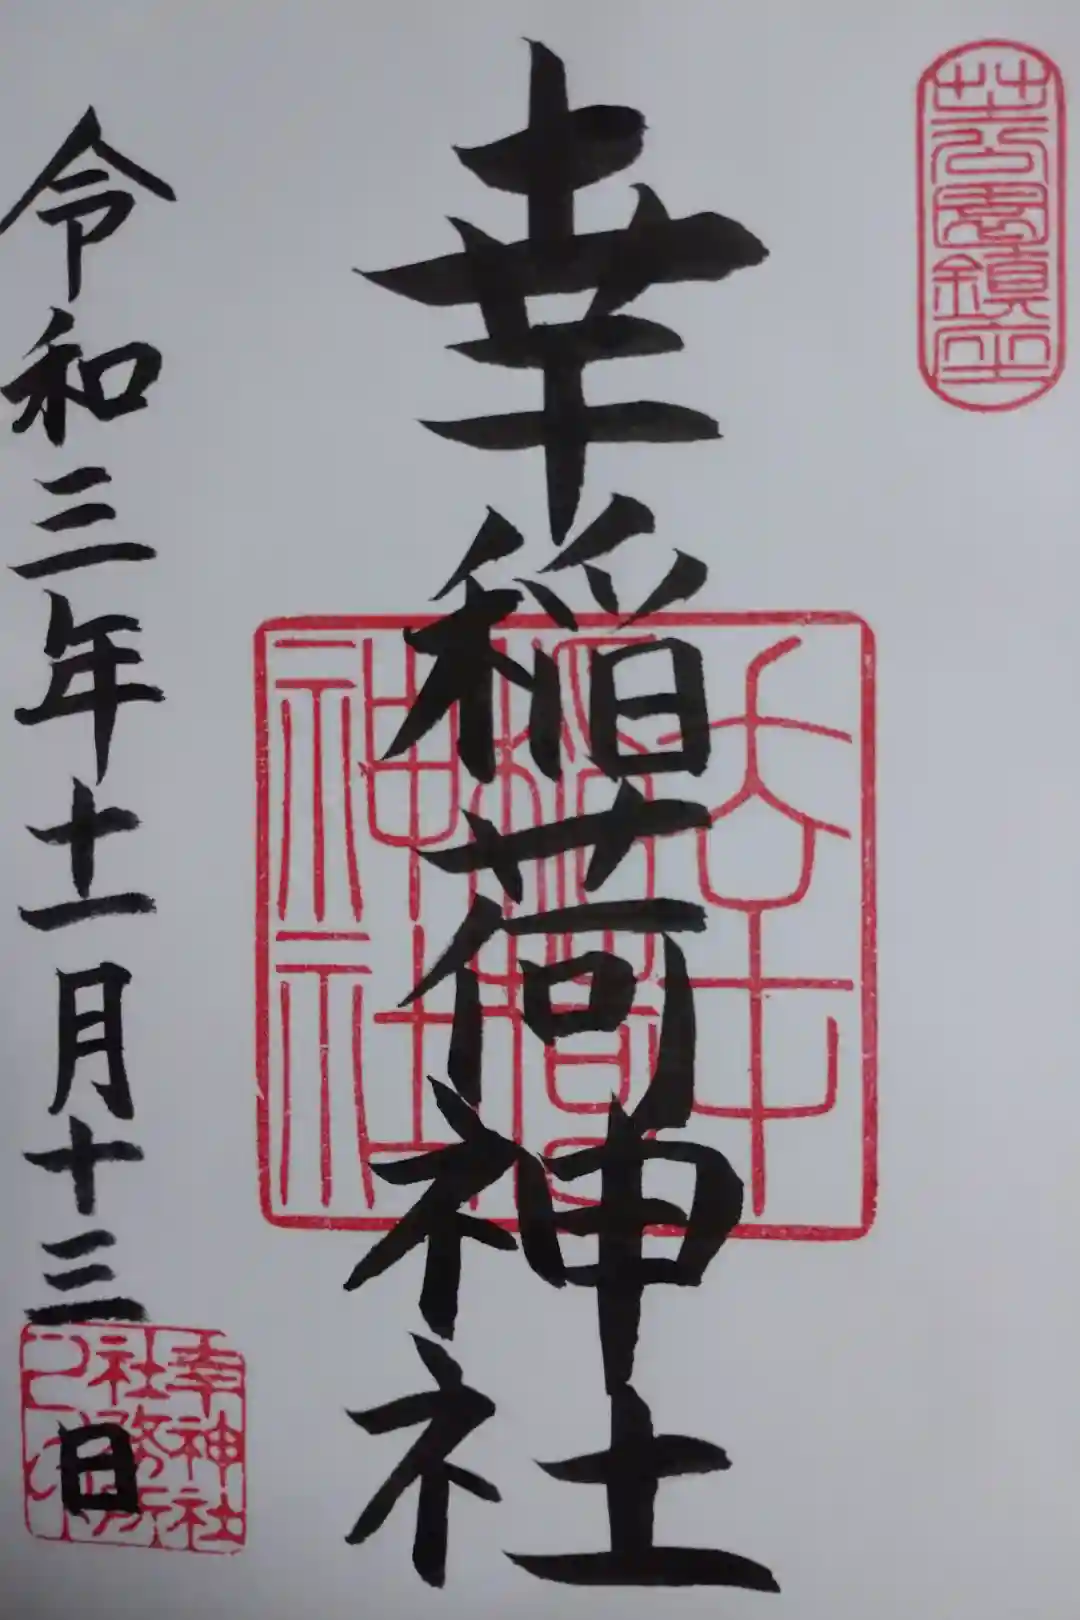 芝公園鎮座
幸稲荷神社
幸
稲荷
神社
令和三年十一月十三日
幸神社
社務所
之印